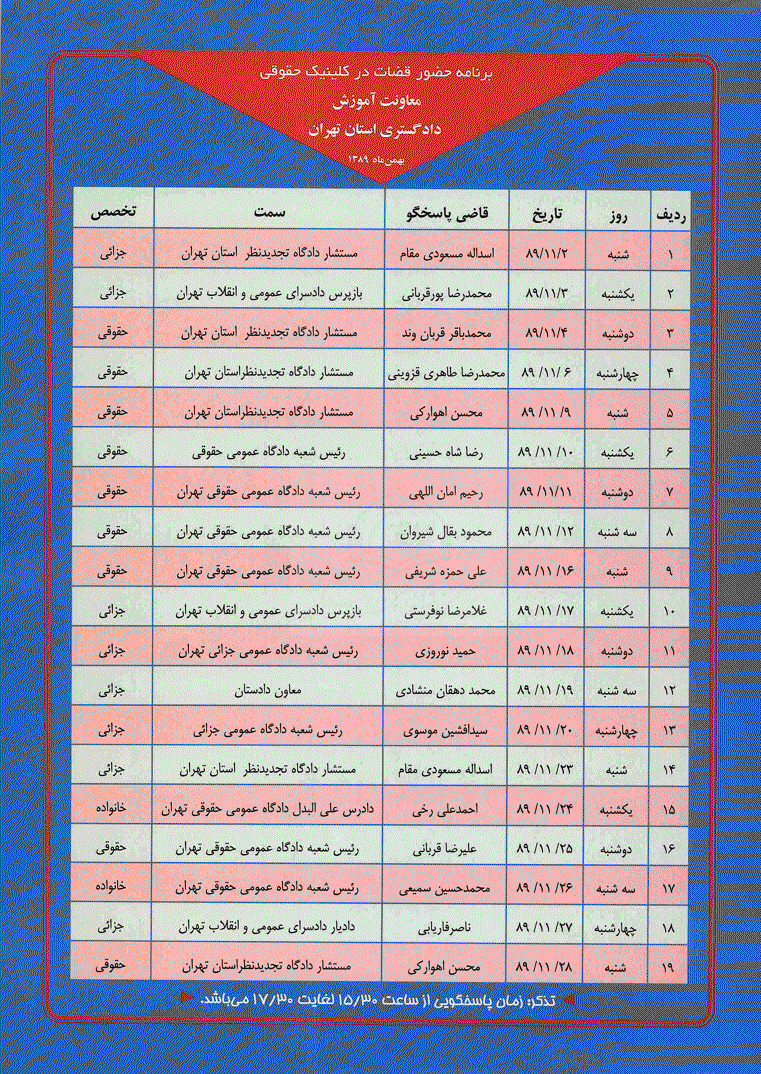 برنامه حضور قضات در کلینیک حقوقی
معاونت آموزش
دادگستری استان تهران
بهمن‌ماه ۱۳۸۹
ردیف روز تاریخ قاضی پاسخگو سمت تخصص
۱ شنبه ۸۹/۱۱/۲ اسداله مسعودی مقام مستشار دادگاه تجدیدنظر استان تهران جزائی
۲ یکشنبه ۸۹/۱۱/۳ محمدرضا پورقربانی بازپرس دادسرای عمومی و انقلاب تهران جزائی
۳ دوشنبه ۸۹/۱۱/۴ محمدباقر قربان وند مستشار دادگاه تجدیدنظر استان تهران حقوقی
۴ چهارشنبه ۸۹/۱۱/۶ محمدرضا طاهری قزوینی مستشار دادگاه تجدیدنظراستان تهران حقوقی
۵ شنبه ۸۹/۱۱/۹ محسن اهوارکی مستشار دادگاه تجدیدنظراستان تهران حقوقی
۶ یکشنبه ۸۹/۱۱/۱۰ رضا شاه حسینی رئیس شعبه دادگاه عمومی حقوقی حقوقی
۷ دوشنبه ۸۹/۱۱/۱۱ رحیم امان اللهی رئیس شعبه دادگاه عمومی حقوقی تهران حقوقی
۸ سه شنبه ۸۹/۱۱/۱۲ محمود بقال شیروان رئیس شعبه دادگاه عمومی حقوقی تهران حقوقی
۹ شنبه ۸۹/۱۱/۱۶ علی حمزه شریفی رئیس شعبه دادگاه عمومی حقوقی تهران حقوقی
۱۰ یکشنبه ۸۹/۱۱/۱۷ غلامرضا نوفرستی بازپرس دادسرای عمومی و انقلاب تهران جزائی
۱۱ دوشنبه ۸۹/۱۱/۱۸ حمید نوروزی رئیس شعبه دادگاه عمومی جزائی تهران جزائی
۱۲ سه شنبه ۸۹/۱۱/۱۹ محمد دهقان منشادی معاون دادستان جزائی
۱۳ چهارشنبه ۸۹/۱۱/۲۰ سیدافشین موسوی رئیس شعبه دادگاه عمومی جزائی جزائی
۱۴ شنبه ۸۹/۱۱/۲۳ اسداله مسعودی مقام مستشار دادگاه تجدیدنظر استان تهران جزائی
۱۵ یکشنبه ۸۹/۱۱/۲۴ احمدعلی رخی دادرس علی البدل دادگاه عمومی حقوقی تهران خانواده
۱۶ دوشنبه ۸۹/۱۱/۲۵ علیرضا قربانی رئیس شعبه دادگاه عمومی حقوقی تهران حقوقی
۱۷ سه شنبه ۸۹/۱۱/۲۶ محمدحسین سمیعی رئیس شعبه دادگاه عمومی حقوقی تهران خانواده
۱۸ چهارشنبه ۸۹/۱۱/۲۷ ناصرفاریابی دادیار دادسرای عمومی و انقلاب تهران جزائی
۱۹ شنبه ۸۹/۱۱/۲۸ محسن اهوارکی مستشار دادگاه تجدیدنظراستان تهران حقوقی
تذکر: زمان پاسخگویی از ساعت ۱۵/۳۰ لغایت ۱۷/۳۰ می‌باشد.